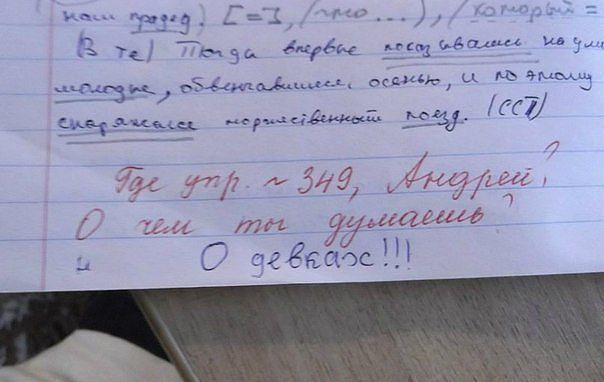 наш прадед). [=], (что...), (который =
(В те) Тогда впервые показывались на ули
молодые, обвенчавшиеся осенью, и поэтому
снаряжался торжественный поезд. (ССП)
Где упр. ~ 349, Андрей?
О чем ты думаешь?
О девках!!!